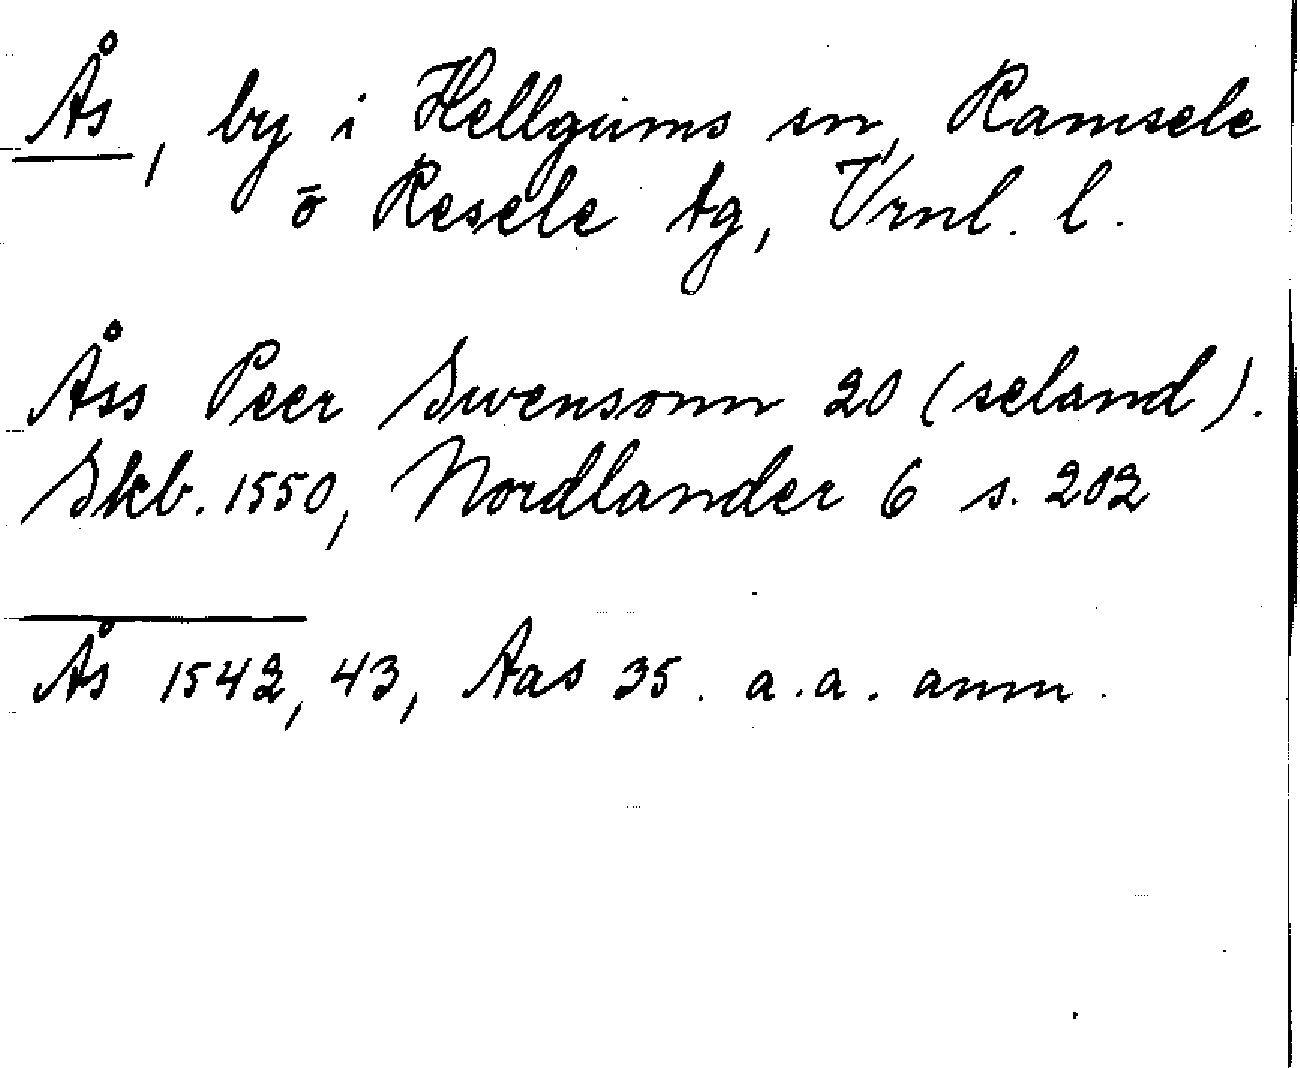 Ås, by i Hellgums sn, Ramsele
o Resele tg, Vrnl. l.
Åss Peer Swensonn 20 (seland).
Skb. 1550, Nordlander 6 s. 202
Ås 1542, 43, Aas 35. a.a. anm.